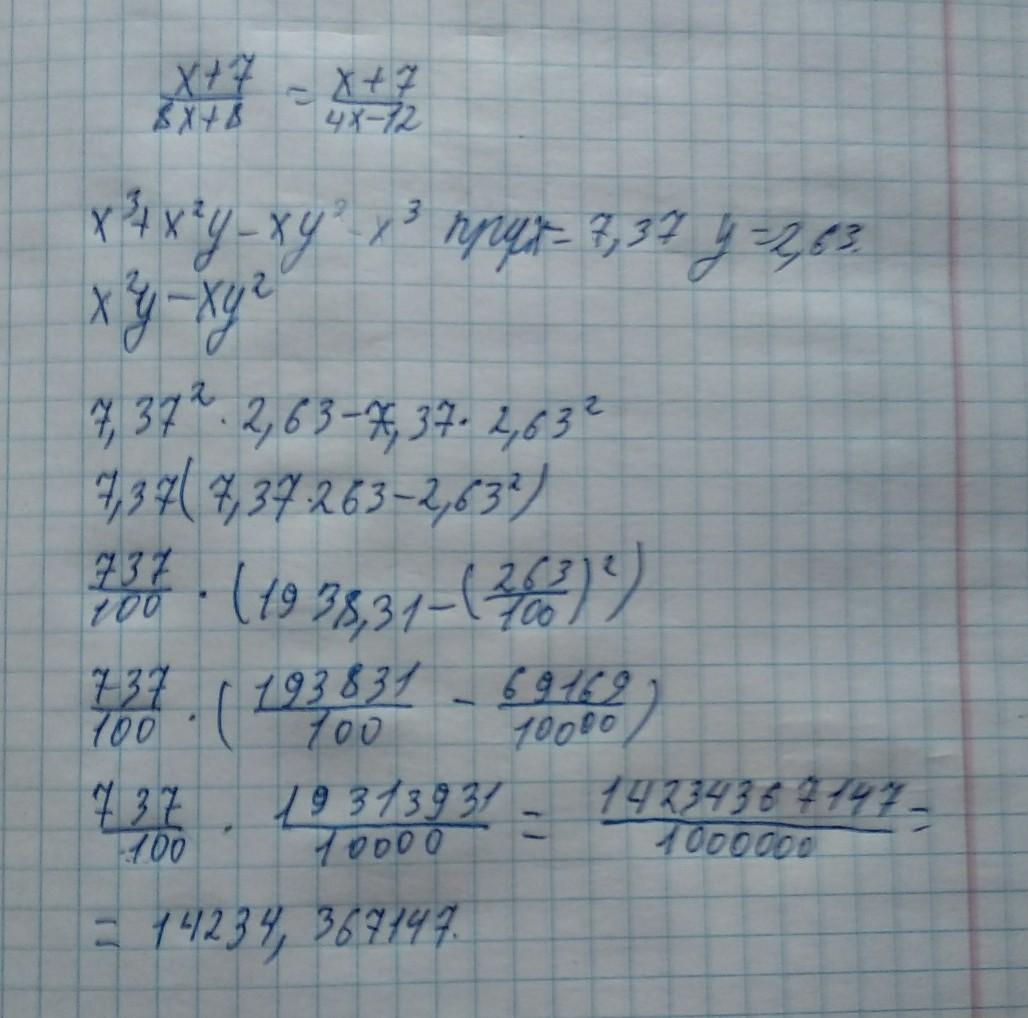 x+7/8x+8 = x+7/4x-12
x³+x²y-xy²-x³ при x=7,37 y=2,63.
x²y-xy²
7,37²·2,63-7,37·2,63²
7,37(7,37·263-2,63²)
737/100·(1938,31-(263/100)²)
737/100·(193831/100-69169/10000)
737/100·19313931/10000=14234367147/1000000=
=14234,367147.